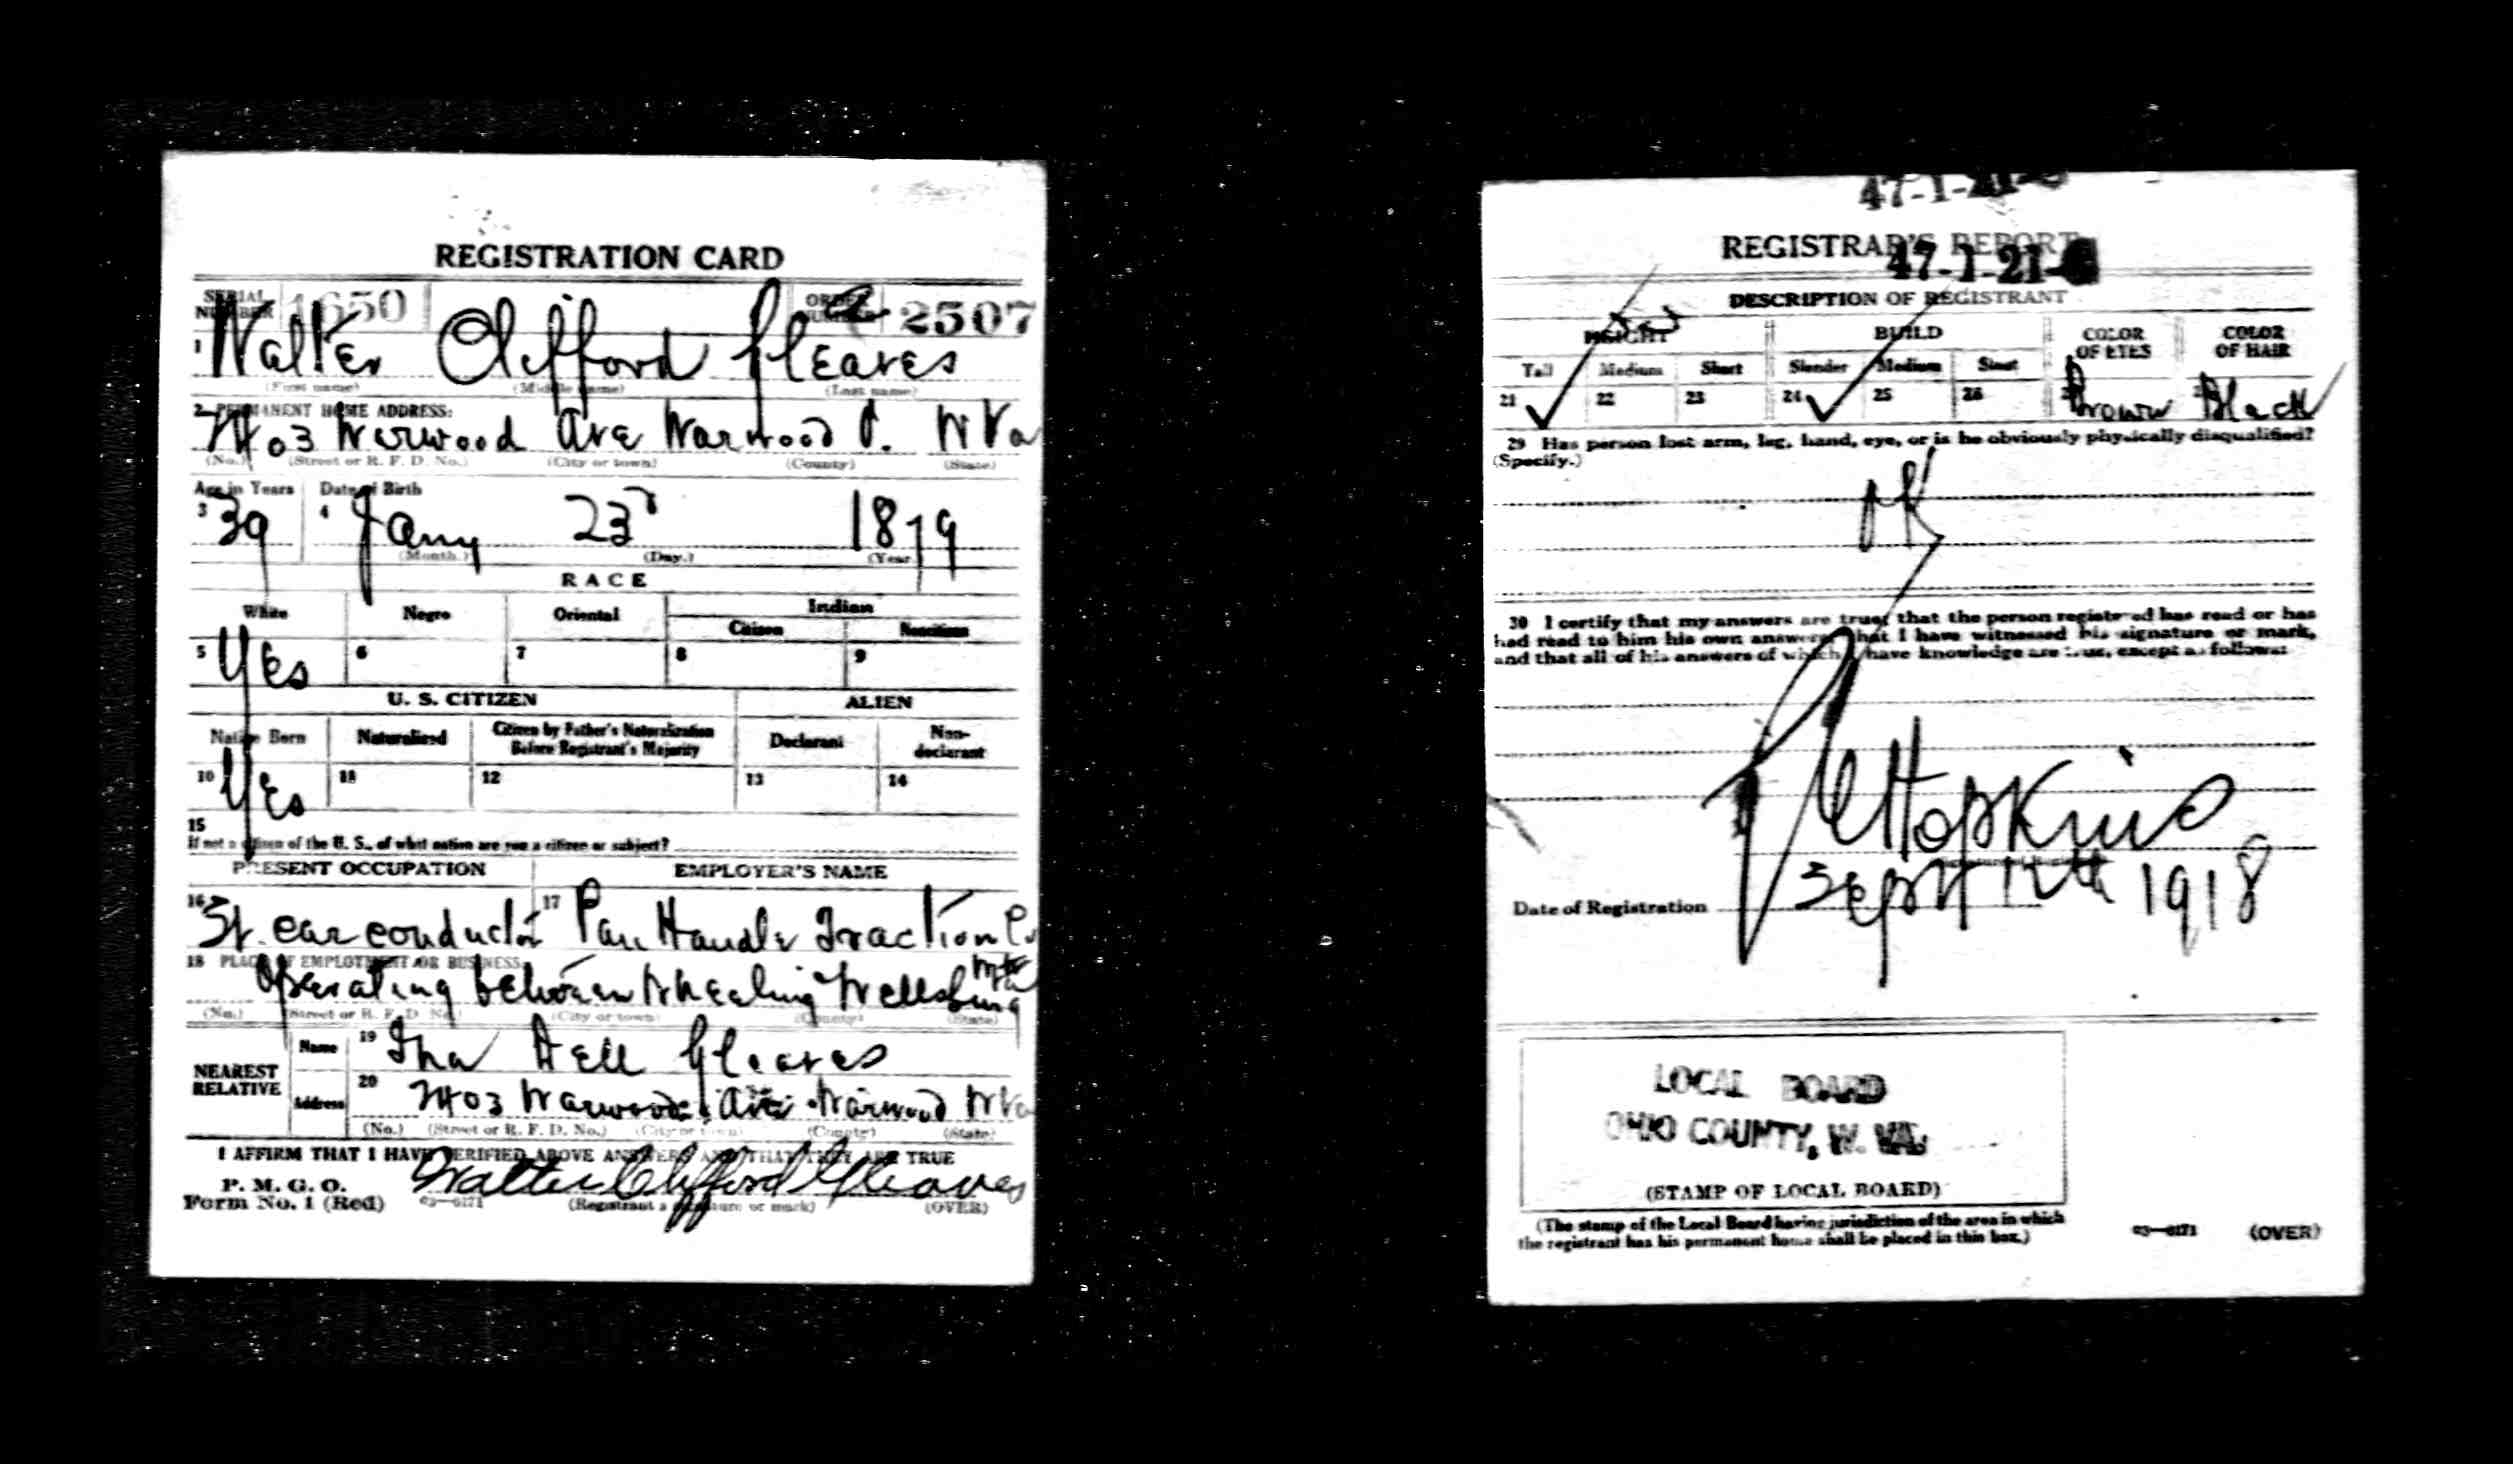 REGISTRATION CARD
SERIAL NUMBER 1650 ORDER NUMBER 2507
1 Walter Clifford Gleaves
(First name) (Middle name) (Last name)
2 PERMANENT HOME ADDRESS:
2403 Warwood Ave Warwood O. W Va
(No.) (Street or R. F. D. No.) (City or town) (County) (State)
Age in Years Date of Birth
3 39 4 Jany 23d 1879
(Month.) (Day.) (Year
RACE
White Negro Oriental Indian
Citizen Noncitizen
5 Yes 6 7 8 9
U. S. CITIZEN ALIEN
Native Born Naturalized Citizen by Father's Naturalization Before Registrant's Majority Declarant Non-declarant
10 Yes 11 12 13 14
15
If not a citizen of the U. S., of what nation are you a citizen or subject?
PRESENT OCCUPATION EMPLOYER'S NAME
16 St. car conductor 17 Pan Handle Traction Co
18 PLACE OF EMPLOYMENT OR BUSINESS:
Operating between Wheeling Wellsburg W Va
(No.) (Street or R. F. D. No.) (City or town) (County) (State)
NEAREST RELATIVE
Name 19 Ina Dell Gleaves
Address 20 2403 Warwood Ave Warwood W Va
(No.) (Street or R. F. D. No.) (City or town) (County) (State)
I AFFIRM THAT I HAVE VERIFIED ABOVE ANSWERS AND THAT THEY ARE TRUE
P. M. G. O.
Form No. 1 (Red) 03—6171 Walter Clifford Gleaves
(Registrant's signature or mark) (OVER)
47-1-21-C
REGISTRAR'S REPORT
47-1-21-C
DESCRIPTION OF REGISTRANT
HEIGHT BUILD COLOR OF EYES COLOR OF HAIR
Tall Medium Short Slender Medium Stout
21 22 23 24 25 26 27 Brown 28 Black
29 Has person lost arm, leg, hand, eye, or is he obviously physically disqualified?
(Specify.)
OK
30 I certify that my answers are true; that the person registered has read or has
had read to him his own answers; that I have witnessed his signature or mark,
and that all of his answers of which I have knowledge are true, except as follows:
Hopkins
Date of Registration Sept 12th 1918
LOCAL BOARD
OHIO COUNTY, W. VA.
(STAMP OF LOCAL BOARD)
(The stamp of the Local Board having jurisdiction of the area in which
the registrant has his permanent home shall be placed in this box.)
03—6171 (OVER)